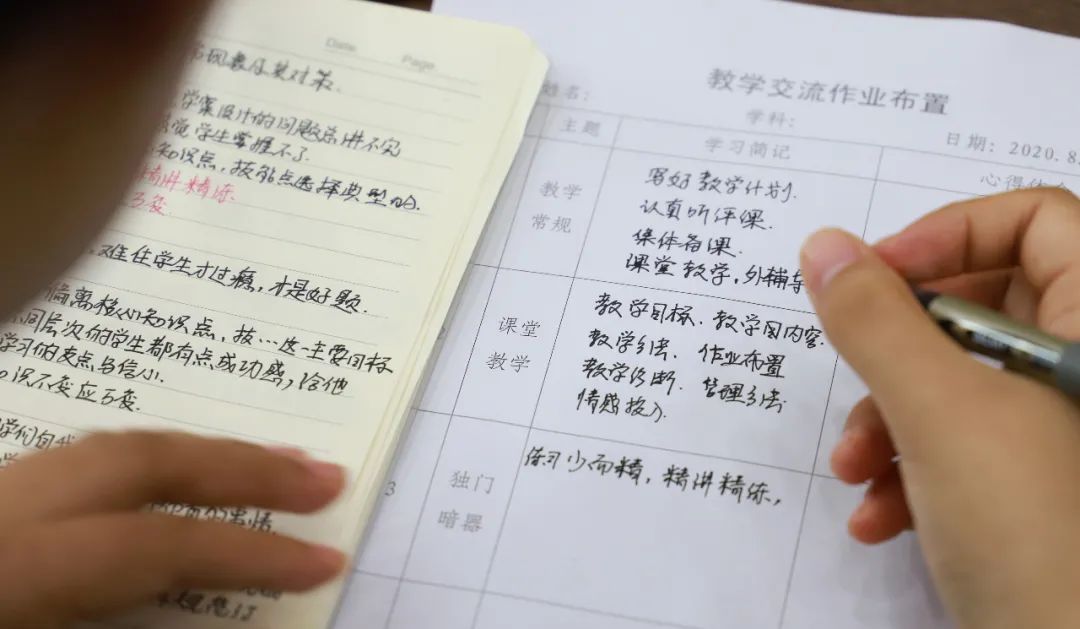 Date
Page
现象及其对策.
学案设计的问题总讲不完
觉学生掌握不了.
知识点,技能点选择典型的.
精讲精练.
难住学生才过瘾,才是好题.
偏离核心知识点,技…这一主要目标
不同层次的学生都有点成功感,给他
学习的支点与信心.
识不变应万变.
教学交流作业布置
姓名:
学科:
日期:2020.8
主题
学习简记
心得体会
教学
常规
写好教学计划.
认真听评课.
集体备课.
课堂教学,外辅导
课堂
教学
教学目标.教学内容.
教学方法. 作业布置
教学诊断. 管理方法
情感投入.
3
独门
暗器
练习少而精,精讲精练,